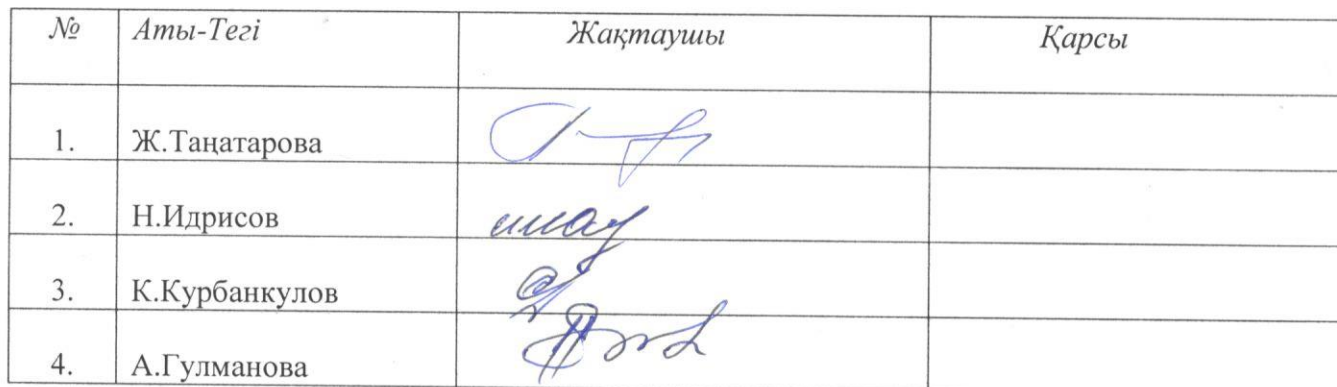 № Аты-Тегі Жақтаушы Қарсы
1. Ж.Таңатарова
2. Н.Идрисов
3. К.Курбанкулов
4. А.Гулманова